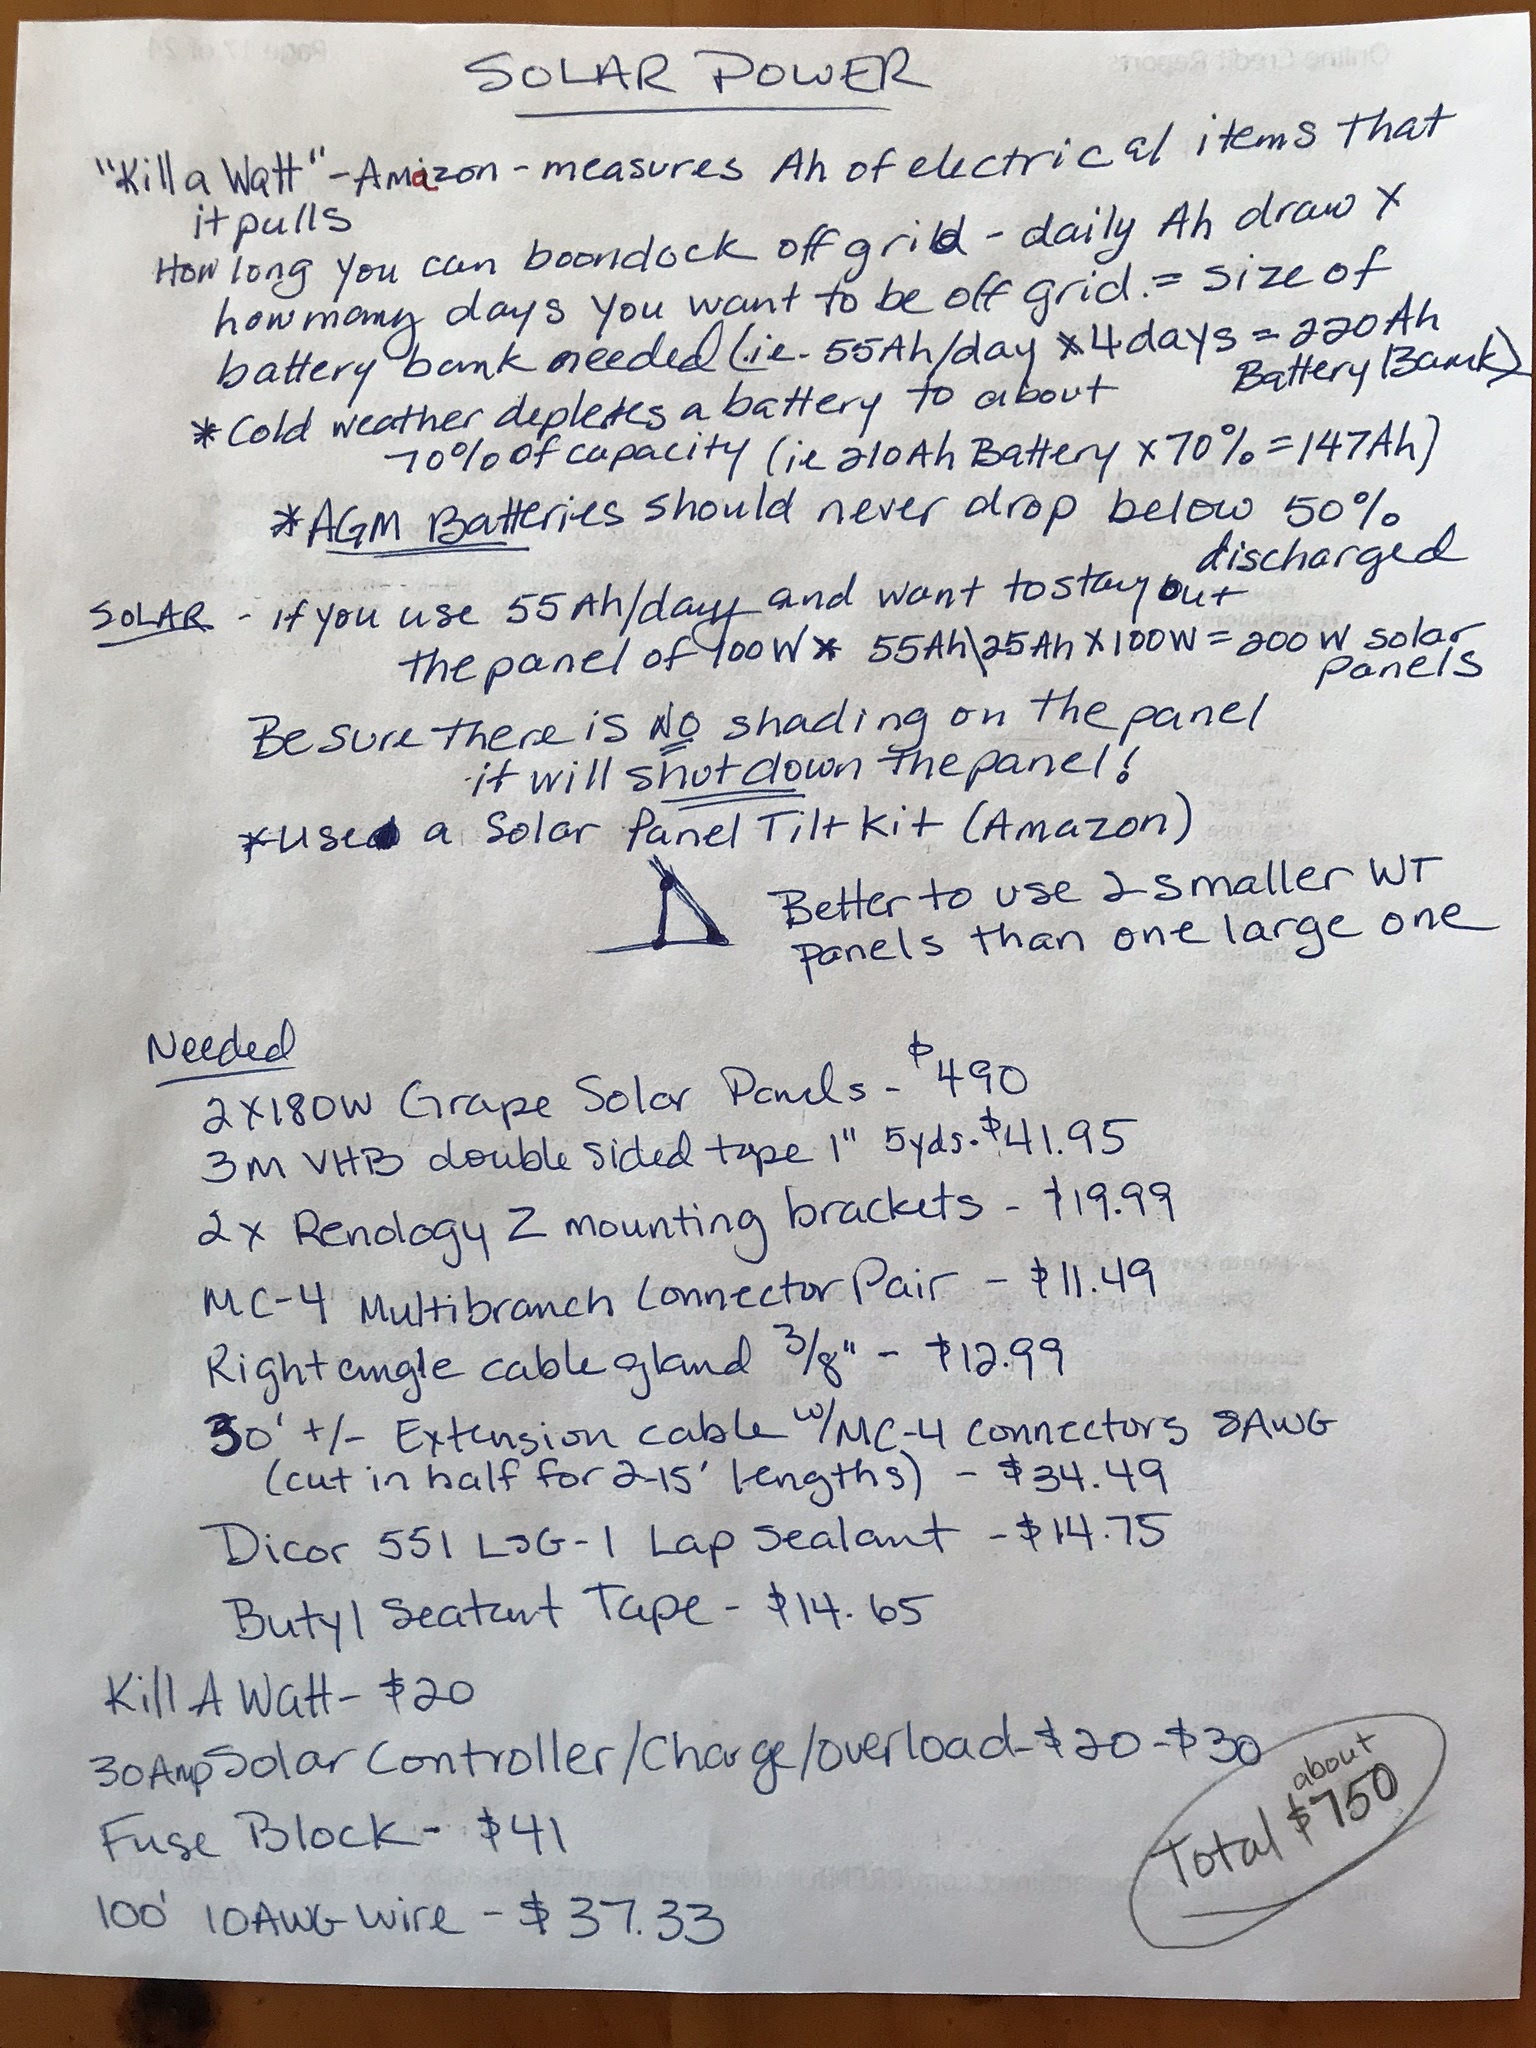 SOLAR POWER
"Kill a Watt" - Amazon - measures Ah of electrical items that
it pulls
How long you can boondock off grid - daily Ah draw x
how many days you want to be off grid. = size of
battery bank needed (i.e. 55Ah/day x 4 days = 220 Ah
Battery Bank)
* Cold weather depletes a battery to about
70% of capacity (ie 210Ah Battery x 70% = 147Ah)
* AGM Batteries should never drop below 50%
discharged
SOLAR - if you use 55 Ah/day and want to stay out
the panel of 100W * 55Ah\25Ah X 100W = 200 W solar
panels
Be sure there is NO shading on the panel
it will shut down the panel!
* use a Solar Panel Tilt kit (Amazon)
Better to use 2 smaller WT
panels than one large one
Needed
2x180W Grape Solar Panels - $490
3M VHB double sided tape 1" 5yds. $41.95
2x Renology Z mounting brackets - $19.99
MC-4 Multibranch Connector Pair - $11.49
Right angle cable gland 3/8" - $12.99
30' +/- Extension cable w/MC-4 connectors 8AWG
(cut in half for 2-15' lengths) - $34.49
Dicor 551 LSG-1 Lap Sealant - $14.75
Butyl Sealant Tape - $14.65
Kill A Watt - $20
30Amp Solar Controller/Charge/overload - $20 - $30
Fuse Block - $41
100' 10AWG wire - $37.33
about
Total $750